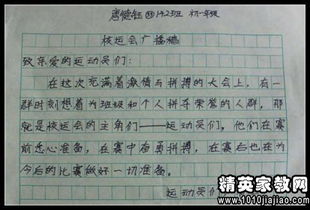 唐健钰 1423班 初一年级
校运会广播稿
致亲爱的运动员们:
在这次充满着激情与拼搏的大会上,有一
群时刻想着为班级和个人拼夺荣誉的人群,那
就是校运会的主角们——运动员们。他们在赛
前悉心准备,在赛中奋勇拼搏,在赛后也在为
今后的比赛做好一切准备。
运动员们
精英家教网
www.1010jiajiao.com